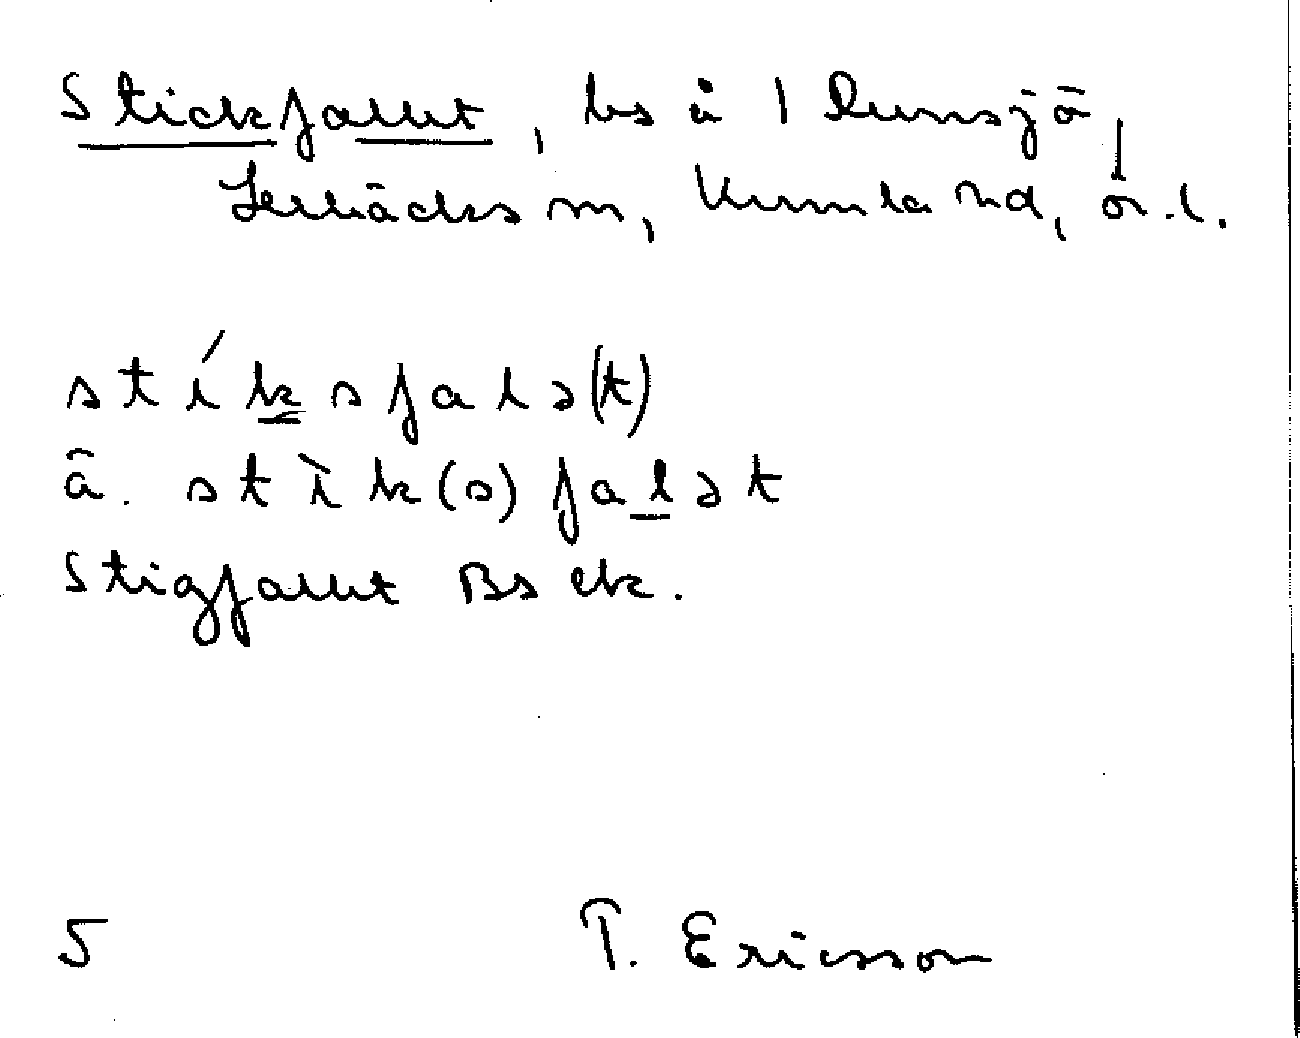 Stickfallet, ls å 1 Runsjö,
Lerbäcks sn, Kumla hd, ör.l.
stík sfalə(t)
ä. stìk(s)falət
Stigfallet Bs ek.
5 T. Ericsson